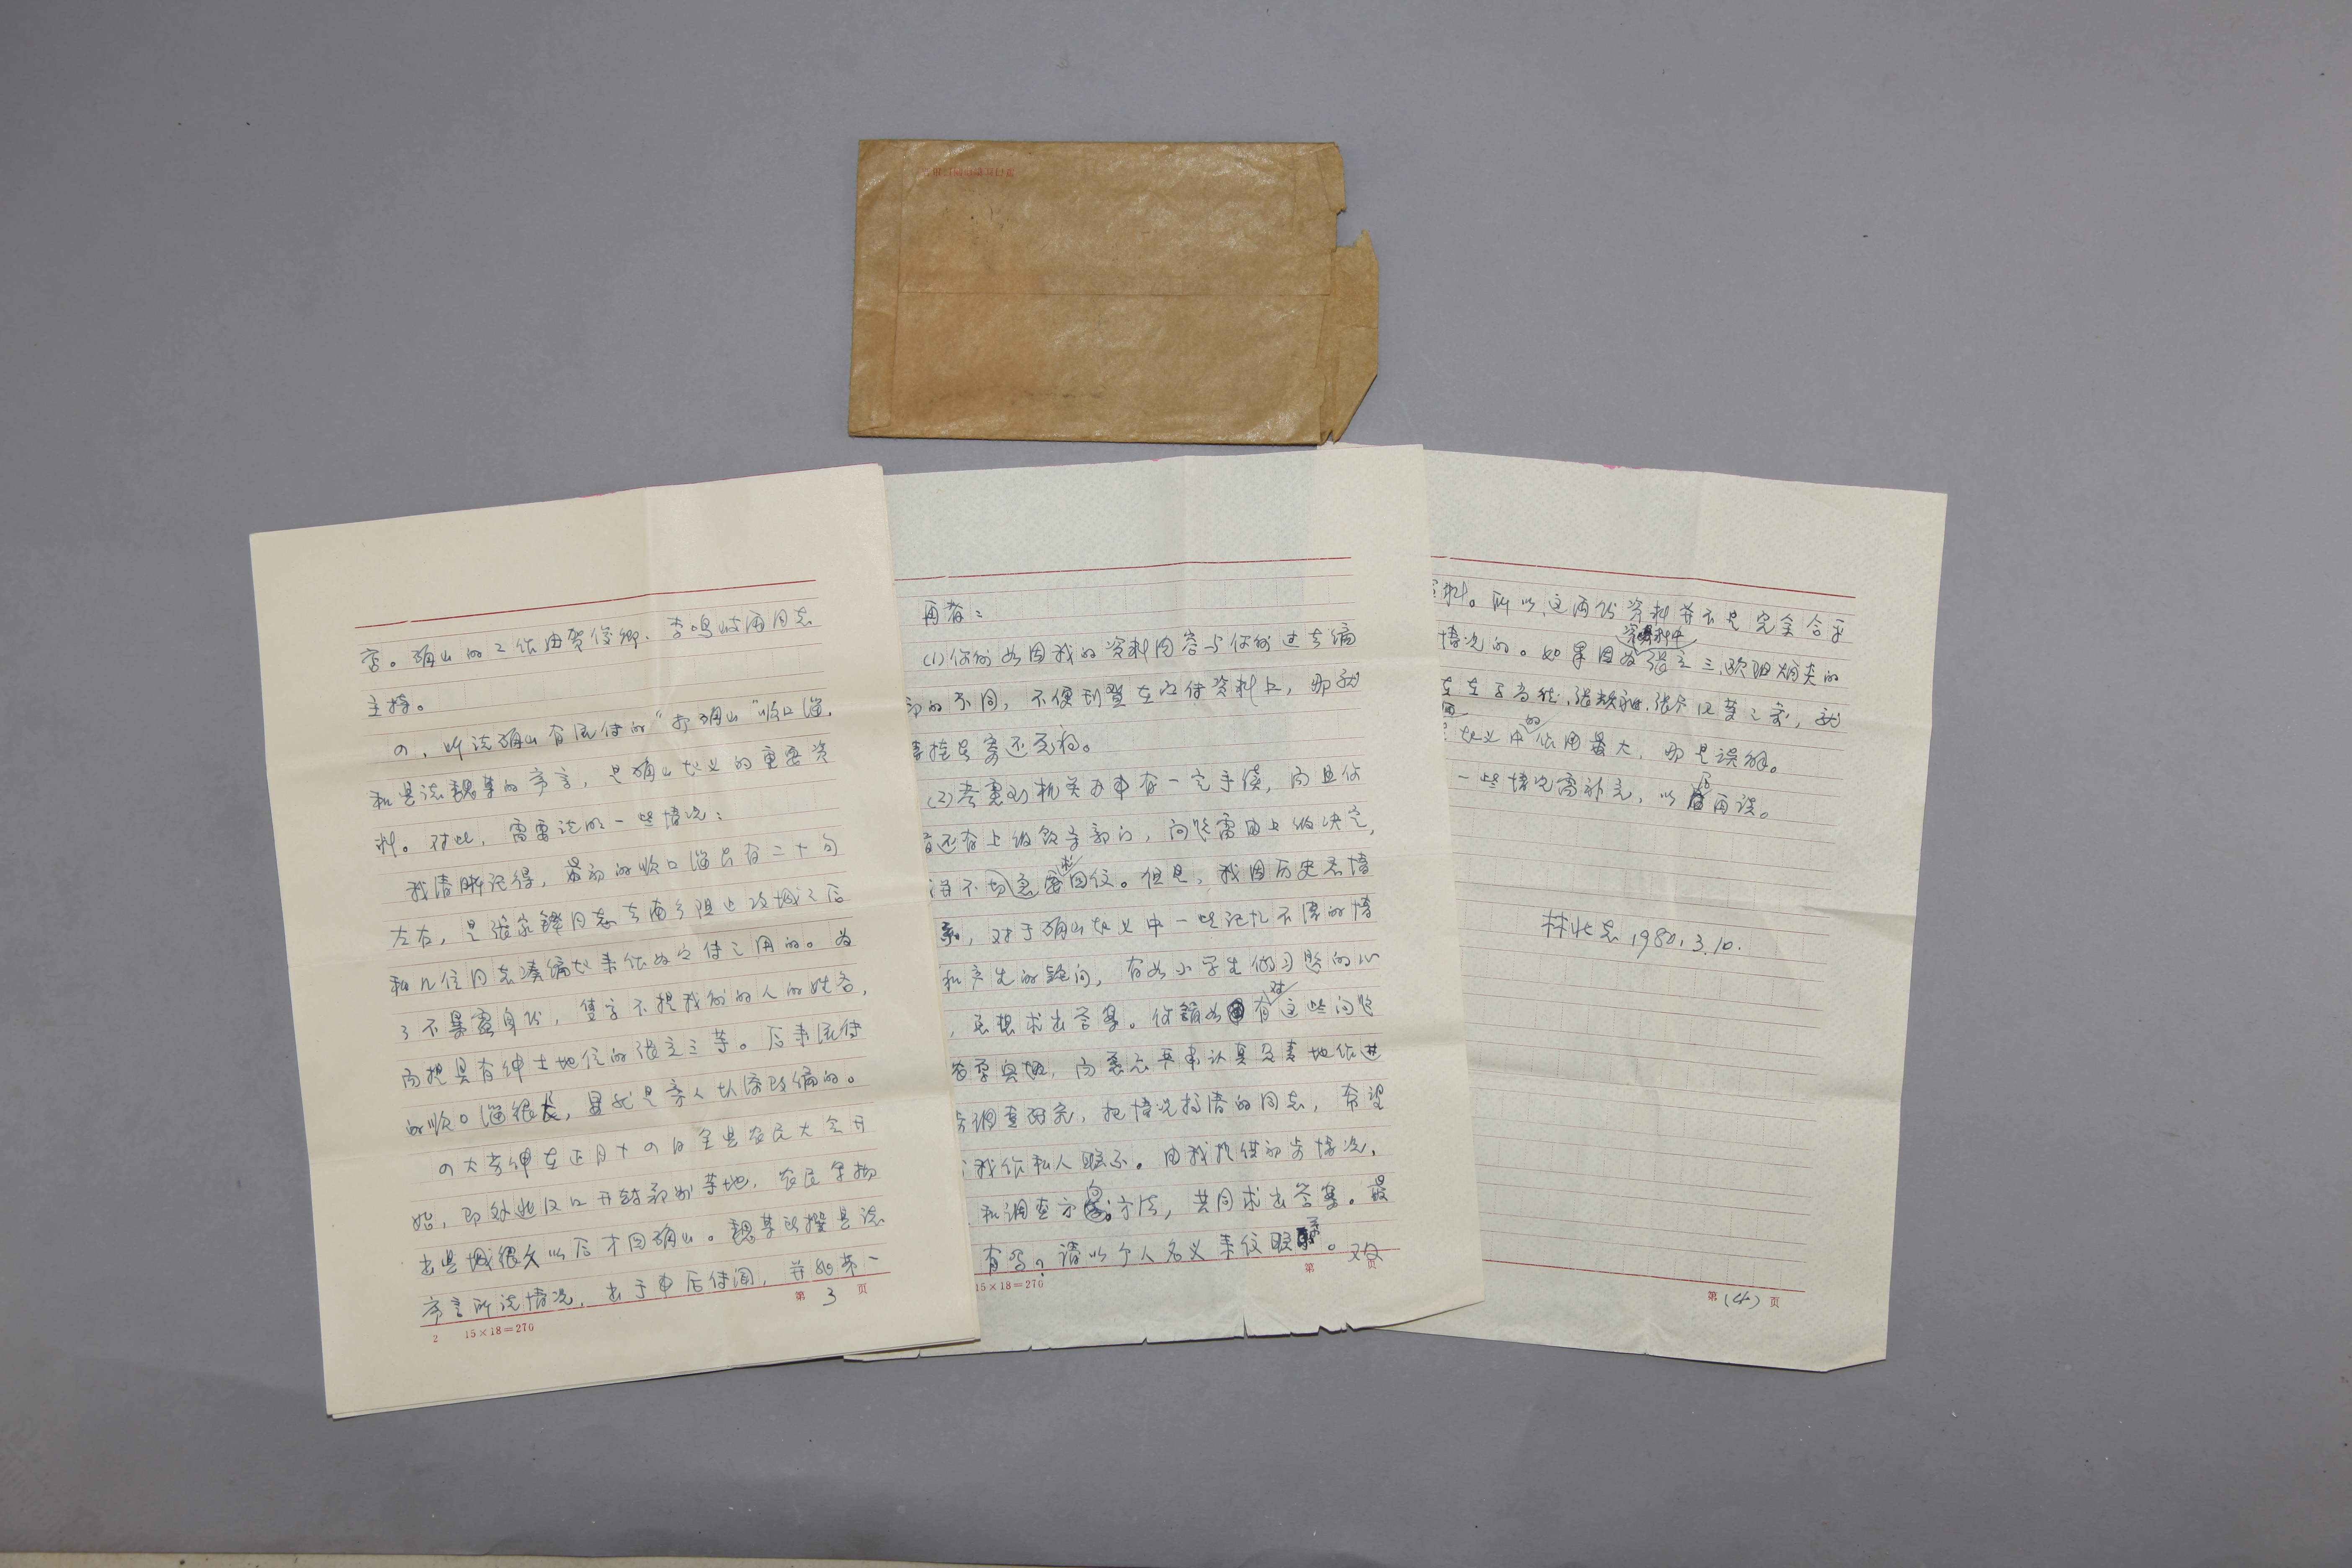 害。确山的工作由贺俊卿、李鸣岐两同志
主持。
四、听说确山有流传的“打确山”顺口溜，
和县志魏某的序言，是确山起义的重要资
料。对此，需要说明一些情况：
我清晰记得，最初的顺口溜只有二十句
左右，是张家铎同志去南乡阻止攻城之后
和几位同志凑编起来作为宣传之用的。为
了不暴露身份，隻字不提我们的人的姓名，
而提具有绅士地位的张立三等。后来流传
的顺口溜很长，显然是旁人改编的。
四大劣绅在正月十四日全县农民大会开
始，即外逃汉口开封郑州等地，农民军撤
出县城很久以后才回确山。魏某所撰县志
序言所说情况，出于事后传闻，并非第一
第 3 页
2 15×18=270
再者：
(1)你们如因我的资料内容与你们过去编
的不同，不便刊登在宣传资料上，那就
挂号寄还无妨。
(2)考虑到机关办事有一定手续，而且你
还有上级领导部门，问题需由上级决定，
并不切急要求回信。但是，我因历史和情
，对于确山起义中一些记忆不清的情
和产生的疑问，有如小学生做习题的心
，总想求出答案。你馆如有对这些问题
兴趣，而表示要求认真负责地作进
调查研究，把情况搞清的同志，希望
我作私人联系。由我提供初步情况，
和调查方向、方法，共同求出答案。最
有吗？请以个人名义来信联系。又及
第 页
15×18=270
料。所以，这两份资料并不是完全合乎
情况的。如果因为资料中张立三、欧阳炳炎的
在左
起义中的作用最大，那是误解。
一些情况需补充，以后再谈。
林壮志 1980.3.10.
第 (4) 页